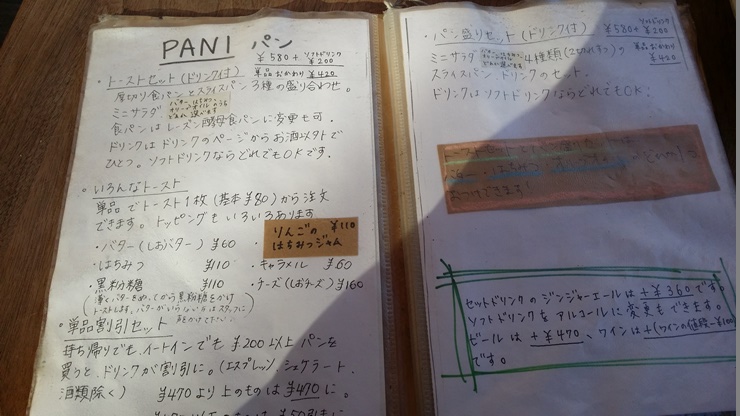 PANI パン
¥580+ソフトドリンク¥200
・トーストセット(ドリンク付) 単品おかわり¥420
厚切り食パンとスライスパン3種の盛り合わせ。
ミニサラダ
食パンはレーズン酵母食パンに変更も可。
ドリンクはドリンクのページからお酒以外で
ひとつ。ソフトドリンクならどれでもOKです。
・いろんなトースト
単品でトースト1枚(基本¥80)から注文
できます。トッピングもいろいろあります
・バター(しおバター) ¥60
りんごの ¥110
はちみつジャム
・はちみつ ¥110
・キャラメル ¥60
・黒粉糖 ¥110
・チーズ(しおチーズ)¥160
・単品割引セット
持ち帰りでも、イートインでも¥200以上パンを
買うと、ドリンクが割引に。(エスプレッソ、シェケラート、
酒類除く) ¥470より上のものは¥470に。
・パン盛りセット(ドリンク付) ¥580+ソフトドリンク¥200
ミニサラダ 4種類(2切れずつ)の 単品おかわり¥420
スライスパン、ドリンクのセット。
ドリンクはソフトドリンクならどれでもOK.
セットドリンクのジンジャーエールは+¥360です。
ソフトドリンクをアルコールに変更もできます。
ビールは+¥470、ワインは+(ワインの値段-¥100)
です。